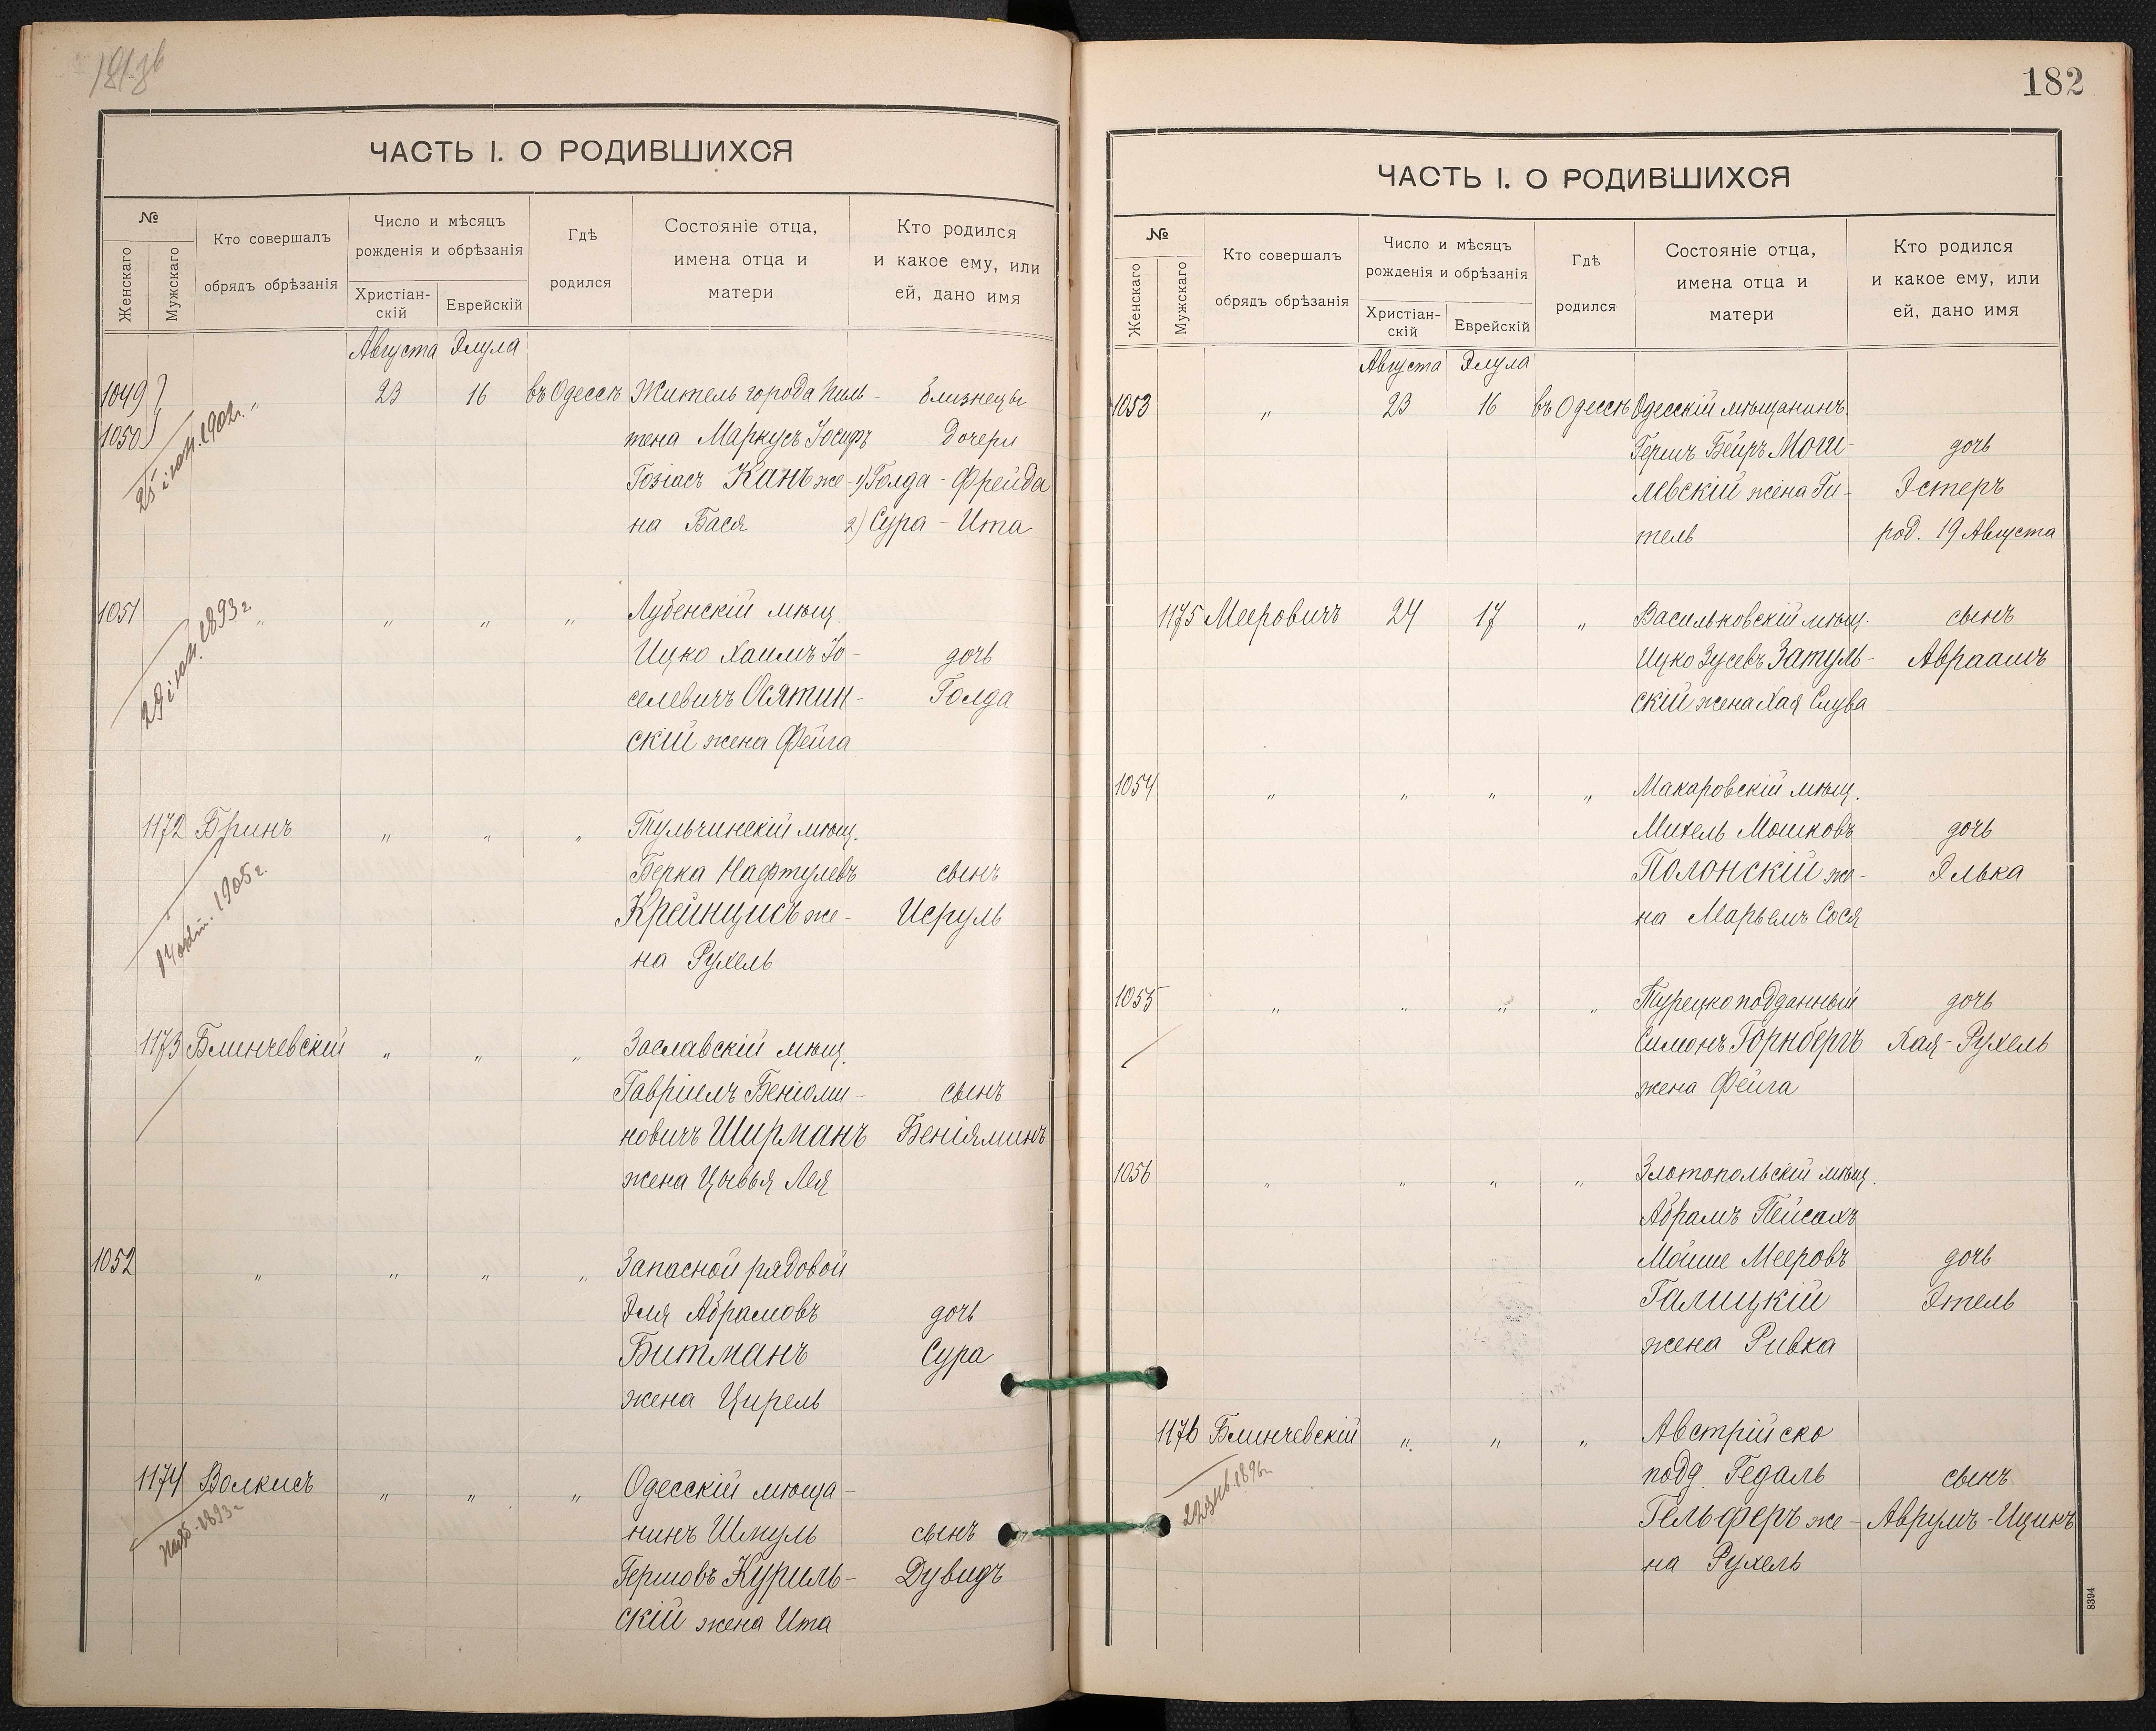 181 зв
ЧАСТЬ I. О РОДИВШИХСЯ
№
Женскаго
Мужскаго
Кто совершалъ
обрядъ обрѣзанія
Число и мѣсяцъ
рожденія и обрѣзанія
Христіан-
скій
Еврейскій
Гдѣ
родился
Состояніе отца,
имена отца и
матери
Кто родился
и какое ему, или
ей, дано имя
Августа Элула
1049 " 23 16 въ Одессѣ Житель города Пиль- близнецы
1050 тена Маркусъ Іосифъ дочери
25 1902г.
Гозіасъ Канъ же- 1) Голда - Фрейда
на Бася 2) Сура - Ита
1051 " " " " Лубенскій мѣщ.
1893 г.
Ицко Хаимъ Іо- дочь
селевичъ Осятин- Голда
скій жена Фейга
1172 Бринъ " " " Тульчинскій мѣщ.
Берка Нафтулевъ сынъ
14 1905 г.
Крейнцисъ же- Исруль
на Рухель
1173 Блинчевскій " " " Заславскій мѣщ.
Гавріилъ Беніоми- сынъ
новичъ Ширманъ Беніяминъ
жена Цывья Лея
1052 " " " " Запасной рядовой
Эля Абрамовъ дочь
Битманъ Сура
жена Цирель
1174 Волкисъ " " " Одесскій мѣща-
1893 г
нинъ Шмуль сынъ
Гершовъ Куриль- Дувидъ
скій жена Ита
182
ЧАСТЬ I. О РОДИВШИХСЯ
№
Женскаго
Мужскаго
Кто совершалъ
обрядъ обрѣзанія
Число и мѣсяцъ
рожденія и обрѣзанія
Христіан-
скій
Еврейскій
Гдѣ
родился
Состояніе отца,
имена отца и
матери
Кто родился
и какое ему, или
ей, дано имя
Августа Элула
1053 " 23 16 въ Одессѣ Одесскій мѣщанинъ
Гершъ Бейръ Моги- дочь
левскій жена Ги- Эстеръ
тель род. 19 Августа
1175 Мееровичъ 24 17 " Васильковскій мѣщ. сынъ
Ицко Зусевъ Затуль- Авраамъ
скій жена Хая Слува
1054 " " " " Макаровскій мѣщ.
Михель Мошковъ дочь
Полонскій же- Элька
на Марьемъ Сося
1055 " " " " Турецкоподданный дочь
Симонъ Горнбергъ Хая-Рухель
жена Фейга
1056 " " " " Златопольскій мѣщ.
Абрамъ Пейсахъ
Мойше Мееровъ дочь
Галицкій Этель
жена Ривка
1176 Блинчевскій " " " Австрійско
подд. Гедаль сынъ
1896г.
Гельферъ же- Аврумъ-Ицикъ
на Рухель
8394